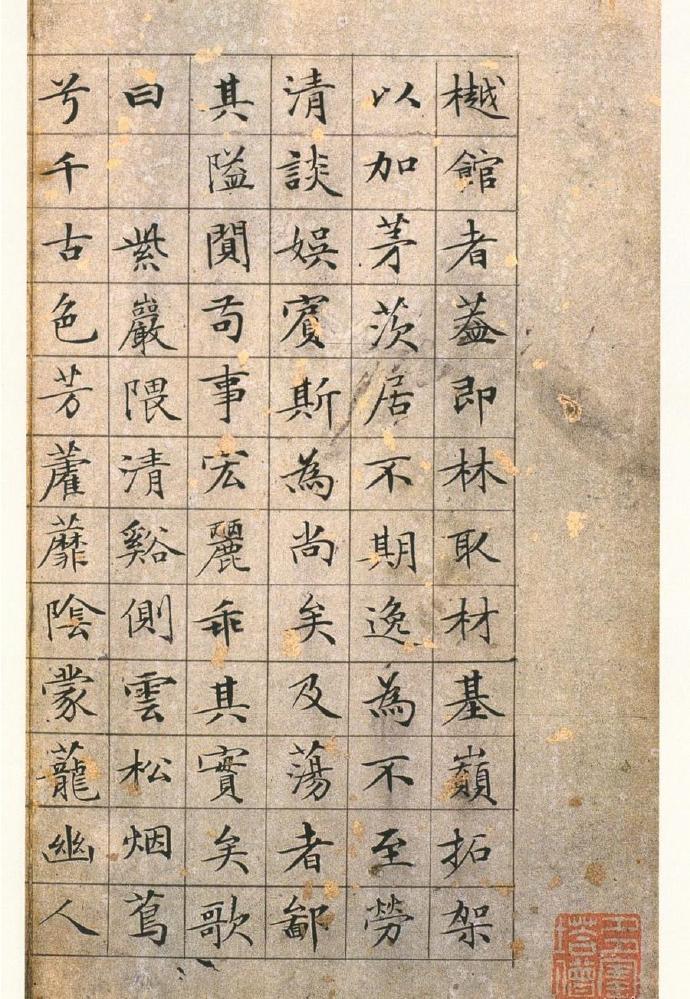 樾館者葢即林取材基巔拓架
以加茅茨居不期逸為不至勞
清談娛賓斯為尚矣及蕩者鄙
其隘閴苟事宏麗乖其實矣歌
曰紫巖隈清谿側雲松烟蔦
兮千古色芳藋蘼陰蒙蘢幽人